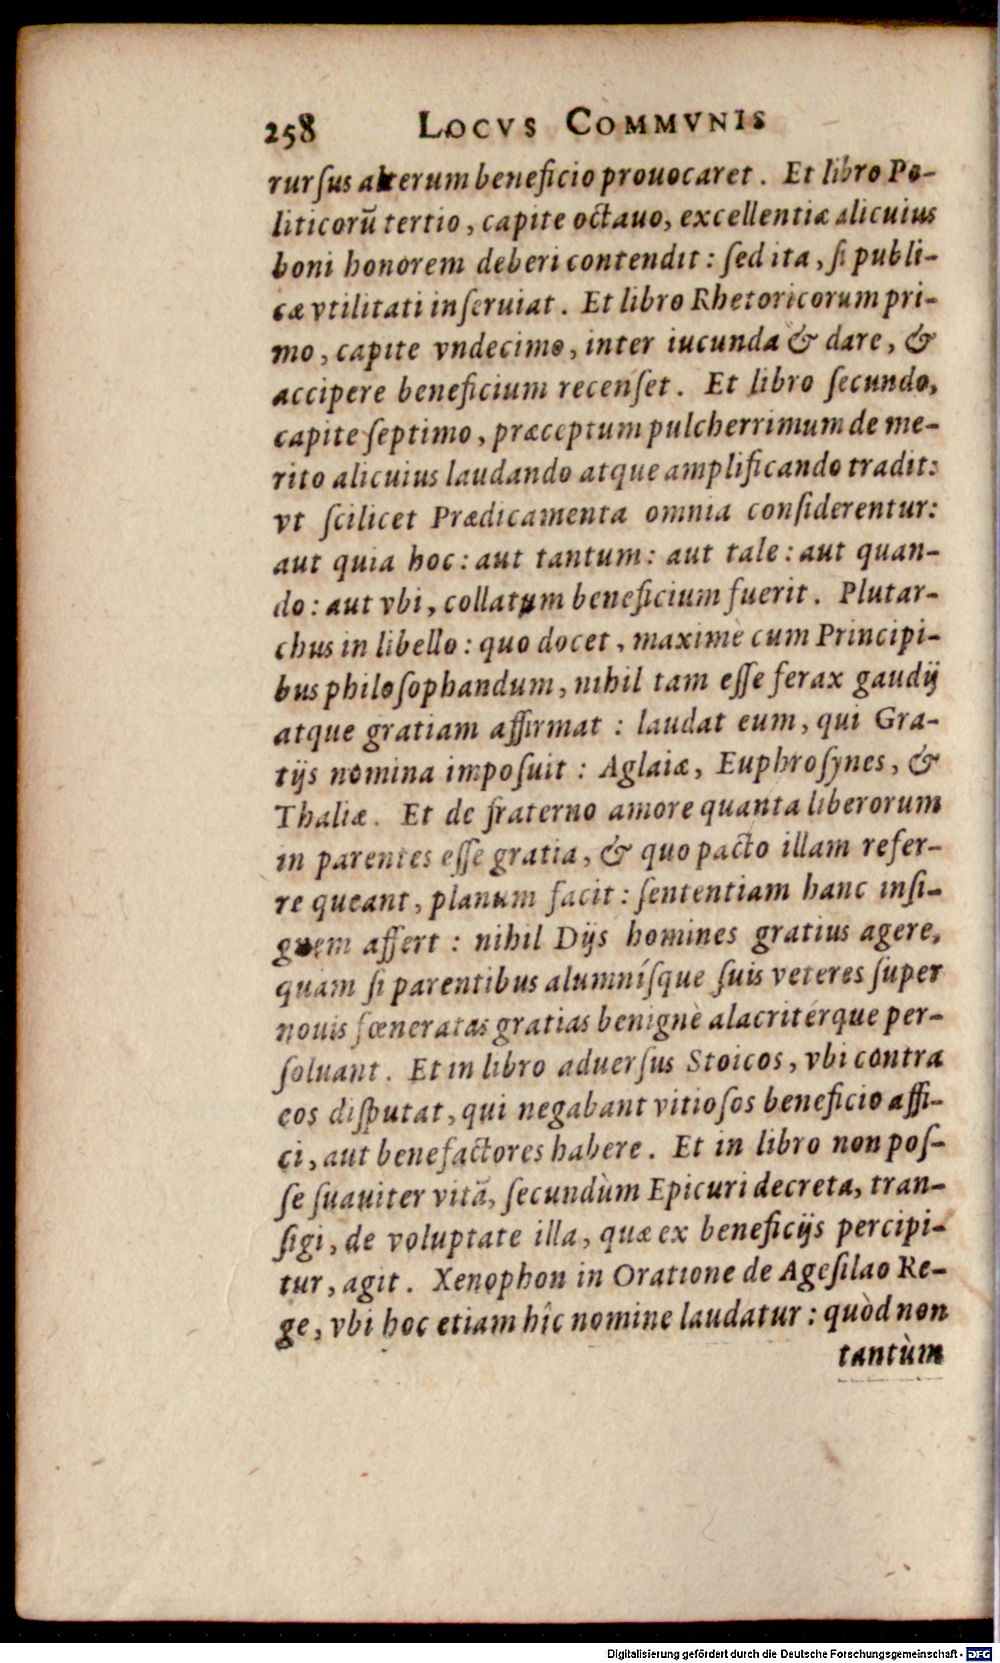 258 LOCVS COMMVNIS
rurſus alterum beneficio prouocaret. Et libro Po-
liticorũ tertio, capite octauo, excellentiæ alicuius
boni honorem deberi contendit: ſed ita, ſi publi-
cæ vtilitati inſeruiat. Et libro Rhetoricorum pri-
mo, capite vndecimo, inter iucunda & dare, &
accipere beneficium recenſet. Et libro ſecundo,
capite ſeptimo, præceptum pulcherrimum de me-
rito alicuius laudando atque amplificando tradit:
vt ſcilicet Prædicamenta omnia conſiderentur:
aut quia hoc: aut tantum: aut tale: aut quan-
do: aut vbi, collatum beneficium fuerit. Plutar-
chus in libello: quo docet, maximè cum Principi-
bus philoſophandum, nihil tam eſſe ferax gaudij
atque gratiam affirmat: laudat eum, qui Gra-
tijs nomina impoſuit: Aglaiæ, Euphroſynes, &
Thaliæ. Et de fraterno amore quanta liberorum
in parentes eſſe gratia, & quo pacto illam refer-
re queant, planum facit: ſententiam hanc inſi-
gnem affert: nihil Dijs homines gratius agere,
quàm ſi parentibus alumníſque ſuis veteres ſuper
nouis fœneratas gratias benignè alacritérque per-
ſoluant. Et in libro aduerſus Stoicos, vbi contra
eos diſputat, qui negabant vitioſos beneficio affi-
ci, aut benefactores habere. Et in libro non poſ-
ſe ſuauiter vitã, ſecundùm Epicuri decreta, tran-
ſigi, de voluptate illa, quæ ex beneficijs percipi-
tur, agit. Xenophon in Oratione de Ageſilao Re-
ge, vbi hoc etiam hîc nomine laudatur: quòd non
tantùm
Digitalisierung gefördert durch die Deutsche Forschungsgemeinschaft - DFG